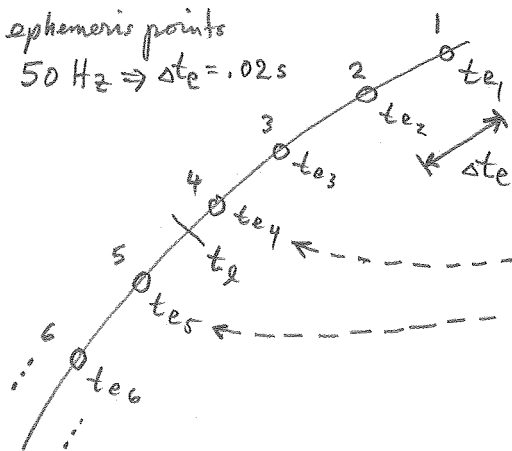 ephemeris points
50 Hz ⇒ Δte = .02 s
1
te1
2
te2
Δte
3
te3
4
te4
tl
5
te5
6
te6